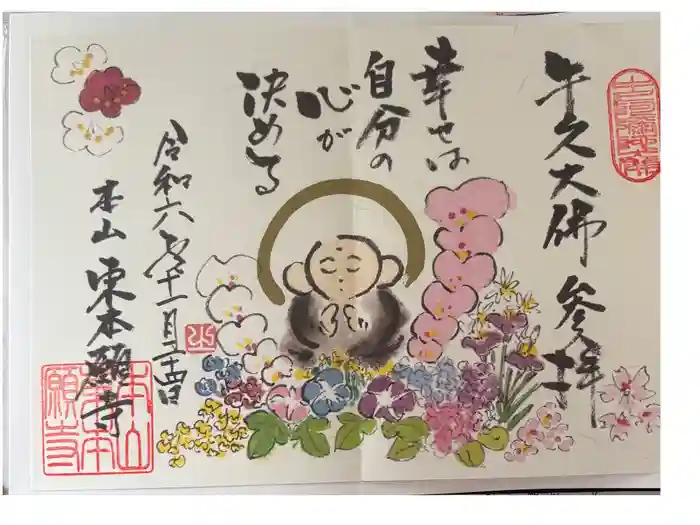 牛久大佛 参拝
幸せは
自分の
心が
決める
令和六年十一月二十四日
本山 東本願寺
本山
東本
願寺